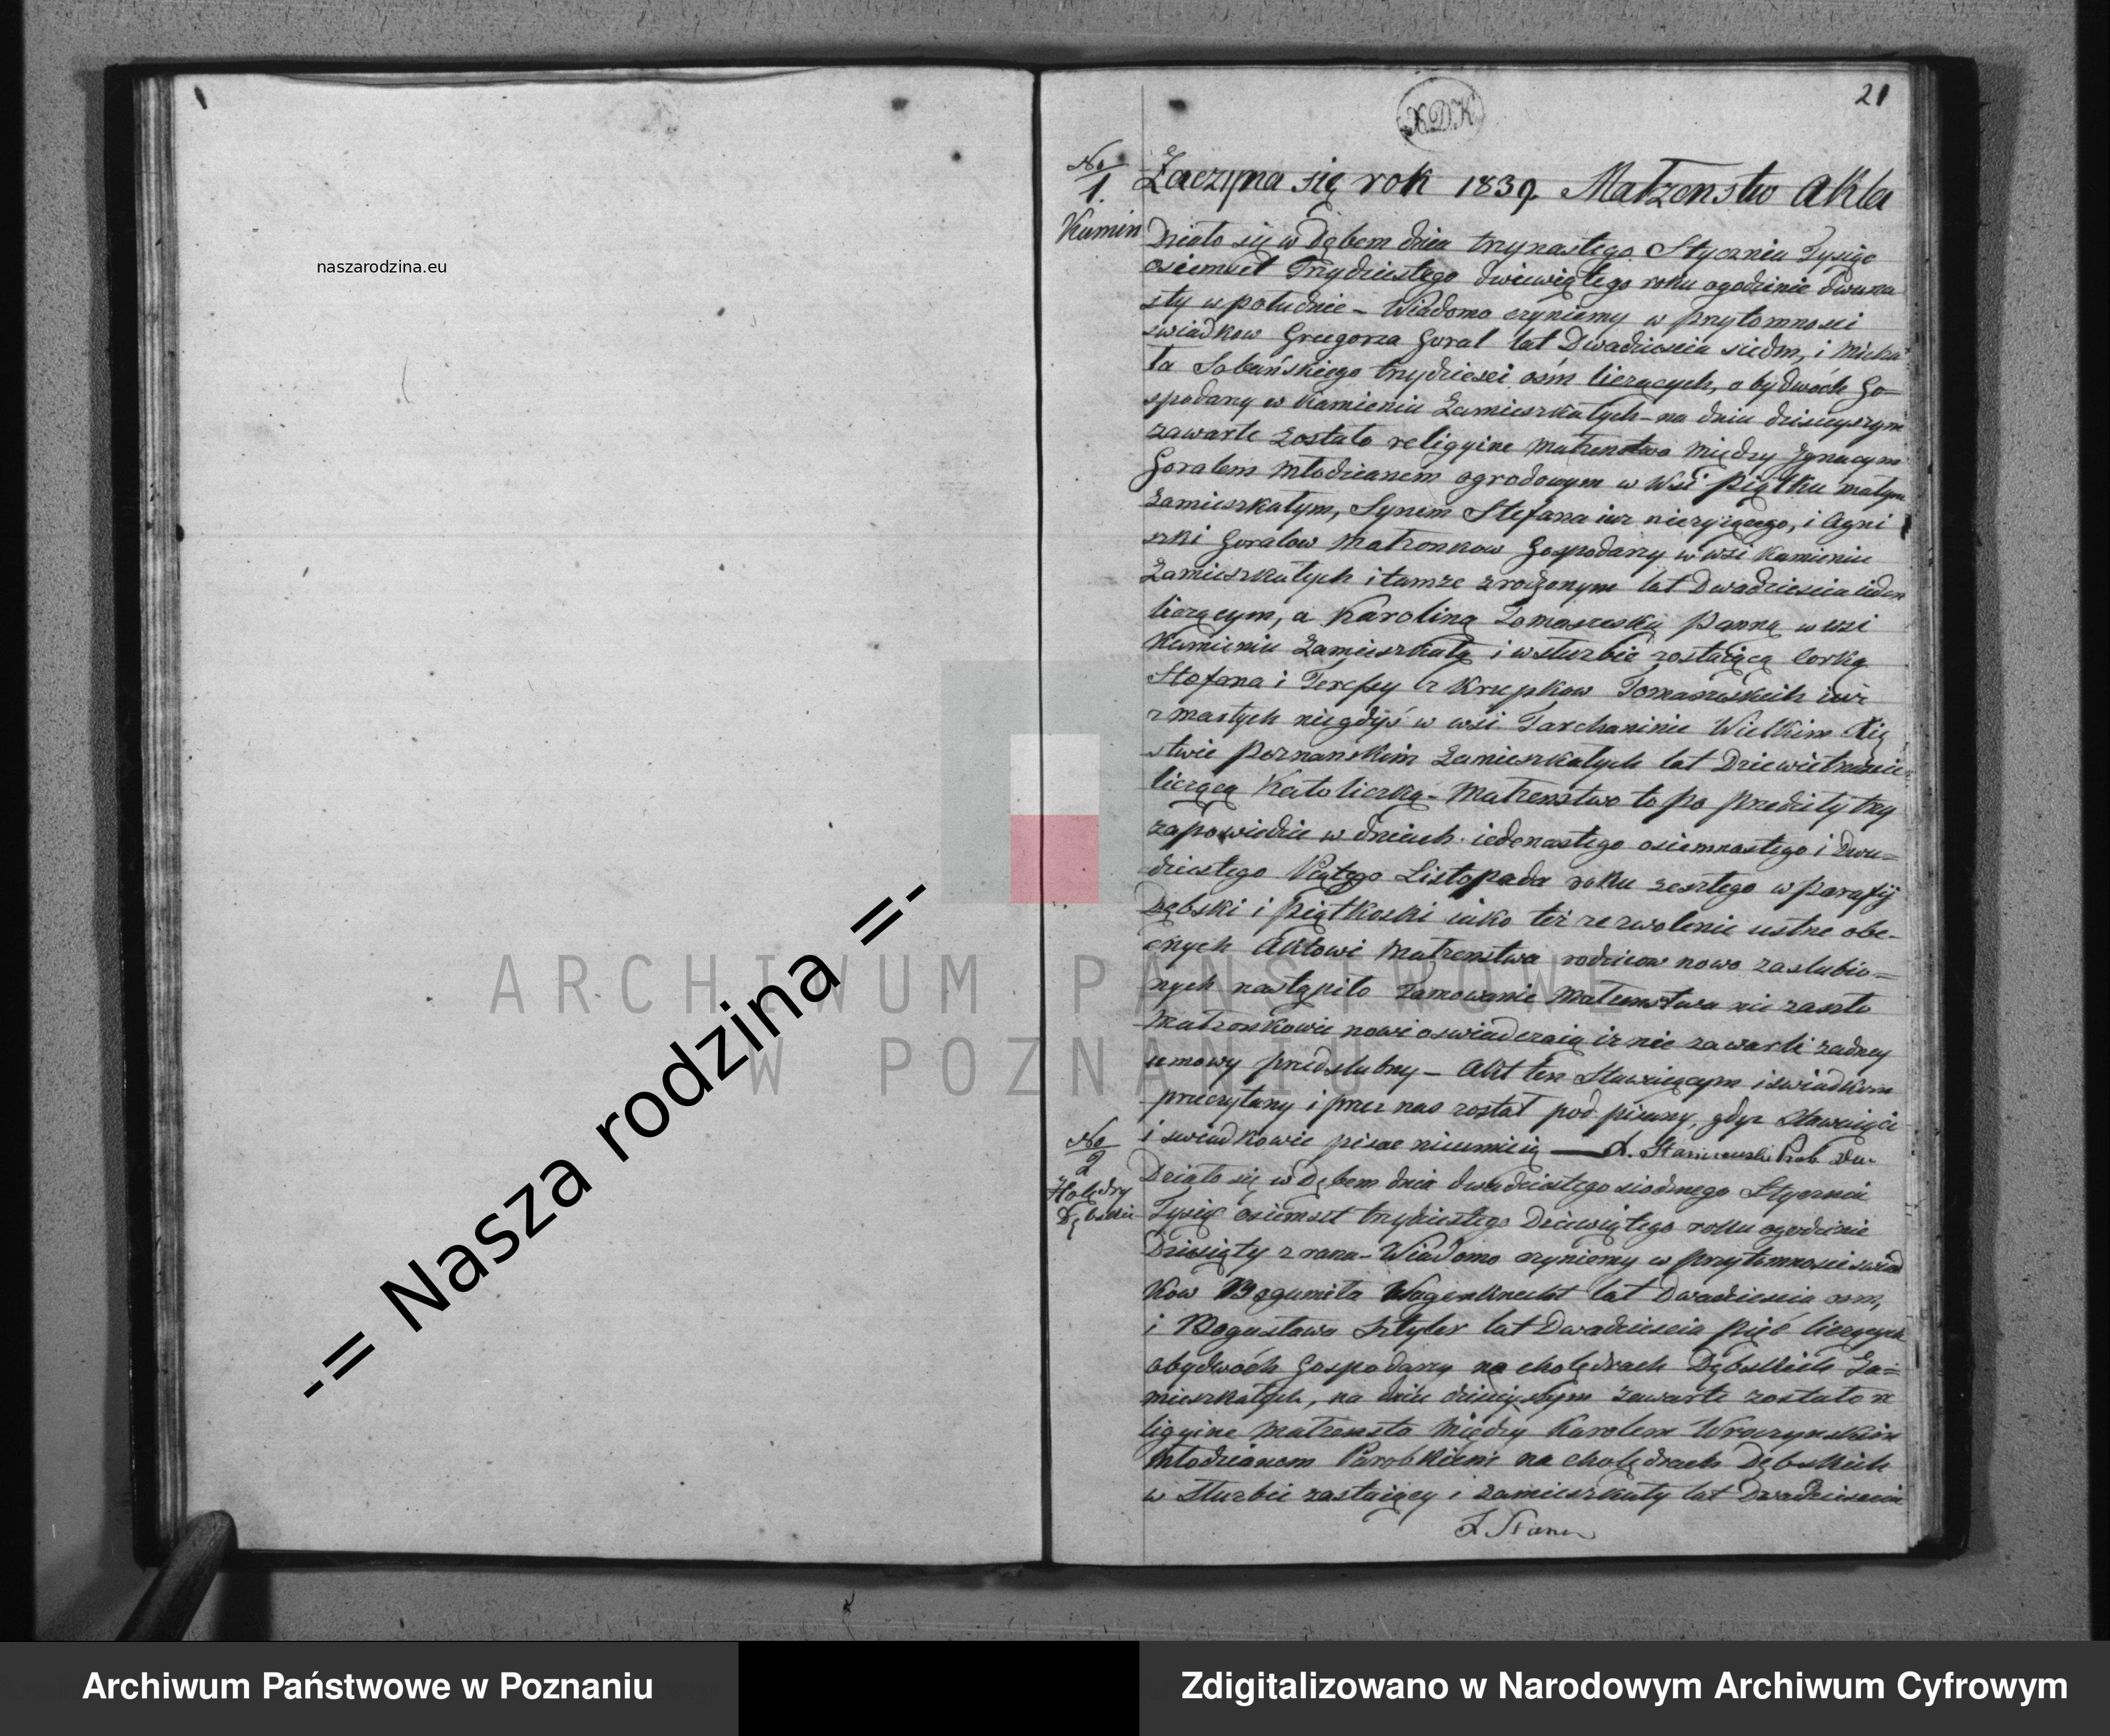 21
XDK
No 1.
Kamin
Zaczyna się rok 1839. Małzenstwo Akta
Działo się w Dębem dnia trzynastego Stycznia Tysiąc
osiemset Trzydziestego dziewiątego roku ogodzinie dwuna
sty w południe – Wiadomo czyniemy w przytomnosci
swiadkow Grzegorza Goral lat Dwadziescia siedm, i Micha
ła Sobańskiego trzydziesci ośm liczących, obydwóch Go=
spodarzy w Kamieniu Zamieszkałych – na dniu dzisieyszym
zawarte zostało religyine Małzenstwo Między Ignacym
Goralem Młodzianem ogrodowym w Wsi Piątku małym
Zamieszkałym, Synem Stefana iuz nieżyiącego, i Agni
szki Goralow Małzonkow Gospodarzy w wsi Kamieniu
Zamieszkałych i tamze zrodzonym lat Dwadziescia ieden
liczącym, a Karoliną Tomaszeską Panną w wsi
Kamieniu Zamieszkałą i w służbie zostaiącą Corką
Stefana i Teressy z Krupkow Tomaszeskich iuż
zmarłych niegdyś w wsi Tarchaninie Wielkim Xię
stwie Poznanskim Zamieszkałych lat Dziewietnascie
liczącą Katoliczką – Małzenstwo to po przedziły trzy
zapowiedzie w dniach iedenastego osiemnastego i Dwu=
dziestego Piątego Listopada roku zeszłego w Parafij
Dębski i Piątkoski iako też ze zwolenie ustne obe-
cnych Aktowi Małzenstwa rodzicow nowo zaslubio=
nych nastąpiło Zamowanie Małzenstwa nie zaszło
Małzonkowie nowi oswiadczaią iz nie zawarli zadney
umowy przedslubny – Akt ten Stawaiącym i swiadkom
przeczytany i przez nas został pod pisany, gdyz Stawaiąci
i swiadkowie pisac nieumieią — X. Staniszewski Prob
No 2
Holędry
Dębskie
Działo się w Dębem dnia dwudziestego siodmego Stycznia
Tysiąc osiemset trzydziestego Dziewiątego roku ogodzinie
Dziesiąty z rana – Wiadomo czyniemy w przytomnosci swiad
kow Bogumiła Wagenknecht lat Dwadziescia osm,
i Bogusława Sztyler lat Dwadziescia pięć liczących
obydwóch Gospodarzy na cholędrach Dębskich Za=
mieszkałych, na dniu dzisieyszym zawarte zostało re
ligyine Małzensto Między Karolem Wroczynskim
Młodzianem Parobkiem na cholędrach Dębskich
w Służbie zostaiący i zamieszkały lat Dwadziescia
naszarodzina.eu
-= Nasza rodzina =-
ARCHIWUM PAŃSTWOWE
W POZNANIU
Archiwum Państwowe w Poznaniu
Zdigitalizowano w Narodowym Archiwum Cyfrowym